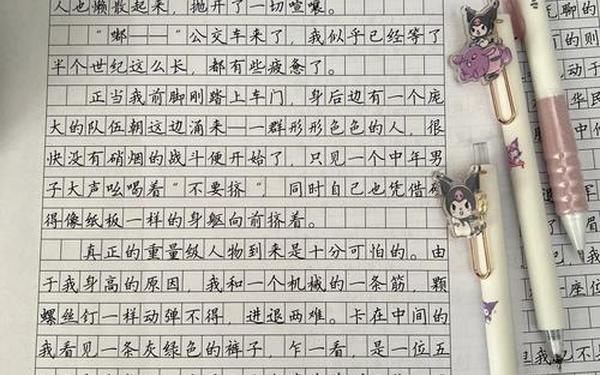 人也懒散起来，抛开了一切喧嚷。
“嘟——”公交车来了，我似乎已经等了
半个世纪这么长，都有些疲惫了。
正当我前脚刚踏上车门，身后边有一个庞
大的队伍朝这边涌来—一群形形色色的人，很
快没有硝烟的战斗便开始了，只见一个中年男
子大声吆喝着“不要挤”，同时自己也凭借
得像纸板一样的身躯向前挤着。
真正的重量级人物到来是十分可怕的。由
于我身高的原因，我和一个机械的一条筋，颗
螺丝钉一样动弹不得，进退两难。卡在中间的
我看见一条灰绿色的裤子，乍一看，是一位五
气聊的
的则
动于
华民
座位
我已